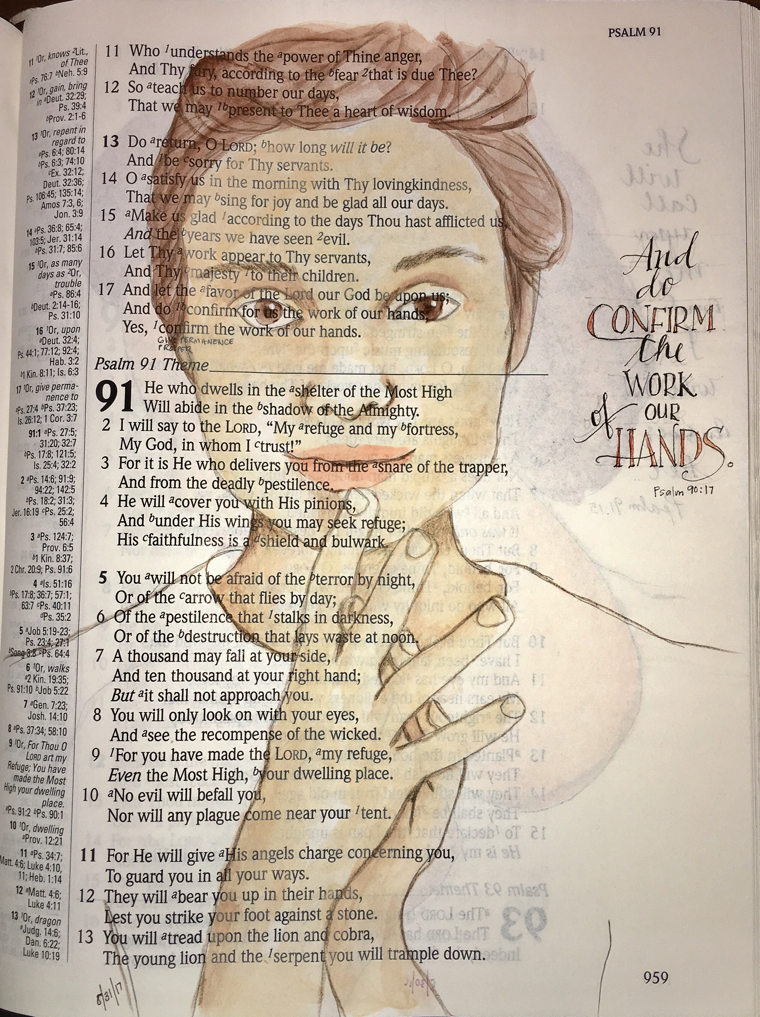 PSALM 91
11 ¹Or, knows ᵃLit., of Thee
ᵃPs. 76:7 ᵇNeh. 5:9
12 ¹Or, gain, bring in ᵃDeut. 32:29;
Ps. 39:4
ᵇProv. 2:1-6
13 ¹Or, repent in regard to
ᵃPs. 6:4; 80:14
ᵇPs. 6:3; 74:10
ᶜEx. 32:12;
Deut. 32:36;
Ps. 106:45; 135:14;
Amos 7:3, 6;
Jon. 3:9
14 ᵃPs. 36:8; 65:4;
103:5; Jer. 31:14
ᵇPs. 31:7; 85:6
15 ¹Or, as many
days as ²Or,
trouble
ᵃPs. 86:4
ᵇDeut. 2:14-16;
Ps. 31:10
16 ¹Or, upon
ᵃDeut. 32:4;
Ps. 44:1; 77:12; 92:4;
Hab. 3:2
ᵇ1 Kin. 8:11; Is. 6:3
17 ¹Or, give perma-
nence to
ᵃPs. 27:4 ᵇPs. 37:23;
Is. 26:12; 1 Cor. 3:7
91:1 ᵃPs. 27:5;
31:20; 32:7
ᵇPs. 17:8; 121:5;
Is. 25:4; 32:2
2 ᵃPs. 14:6; 91:9;
94:22; 142:5
ᵇPs. 18:2; 31:3;
Jer. 16:19 ᶜPs. 25:2;
56:4
3 ᵃPs. 124:7;
Prov. 6:5
ᵇ1 Kin. 8:37;
2 Chr. 20:9; Ps. 91:6
4 ᵃIs. 51:16
ᵇPs. 17:8; 36:7; 57:1;
63:7 ᶜPs. 40:11
ᵈPs. 35:2
5 ᵃJob 5:19-23;
Ps. 23:4; 27:1
ᵇSong 3:8 ᶜPs. 64:4
6 ¹Or, walks
ᵃ2 Kin. 19:35;
Ps. 91:10 ᵇJob 5:22
7 ᵃGen. 7:23;
Josh. 14:10
8 ᵃPs. 37:34; 58:10
9 ¹Or, For Thou O
LORD art my
Refuge; You have
made the Most
High your dwelling
place.
ᵃPs. 91:2 ᵇPs. 90:1
10 ¹Or, dwelling
ᵃProv. 12:21
11 ᵃPs. 34:7;
Matt. 4:6; Luke 4:10,
11; Heb. 1:14
12 ᵃMatt. 4:6;
Luke 4:11
13 ¹Or, dragon
ᵃJudg. 14:6;
Dan. 6:22;
Luke 10:19
11 Who ¹understands the ᵃpower of Thine anger,
And Thy fury, according to the ᵇfear ²that is due Thee?
12 So ᵃteach us to number our days,
That we may ¹ᵇpresent to Thee a heart of wisdom.
13 Do ᵃreturn, O LORD; ᵇhow long will it be?
And ¹be ᶜsorry for Thy servants.
14 O ᵃsatisfy us in the morning with Thy lovingkindness,
That we may ᵇsing for joy and be glad all our days.
15 ᵃMake us glad ¹according to the days Thou hast afflicted us,
And the ᵇyears we have seen ²evil.
16 Let Thy ᵃwork appear to Thy servants,
And Thy ᵇmajesty ¹to their children.
17 And let the ᵃfavor of the Lord our God be upon us;
And do ¹ᵇconfirm for us the work of our hands;
Yes, ¹confirm the work of our hands.
GIVE PERMANENCE
Psalm 91 Theme
91 He who dwells in the ᵃshelter of the Most High
Will abide in the ᵇshadow of the Almighty.
2 I will say to the LORD, “My ᵃrefuge and my ᵇfortress,
My God, in whom I ᶜtrust!”
3 For it is He who delivers you from the ᵃsnare of the trapper,
And from the deadly ᵇpestilence.
4 He will ᵃcover you with His pinions,
And ᵇunder His wings you may seek refuge;
His ᶜfaithfulness is a ᵈshield and bulwark.
5 You ᵃwill not be afraid of the ᵇterror by night,
Or of the ᶜarrow that flies by day;
6 Of the ᵃpestilence that ¹stalks in darkness,
Or of the ᵇdestruction that lays waste at noon.
7 A thousand may fall at your side,
And ten thousand at your right hand;
But ᵃit shall not approach you.
8 You will only look on with your eyes,
And ᵃsee the recompense of the wicked.
9 ¹For you have made the LORD, ᵃmy refuge,
Even the Most High, ᵇyour dwelling place.
10 ᵃNo evil will befall you,
Nor will any plague come near your ¹tent.
11 For He will give ᵃHis angels charge concerning you,
To guard you in all your ways.
12 They will ᵃbear you up in their hands,
Lest you strike your foot against a stone.
13 You will ᵃtread upon the lion and cobra,
The young lion and the ¹serpent you will trample down.
And
do
CONFIRM
the
WORK
of OUR
HANDS.
Psalm 90:17
959